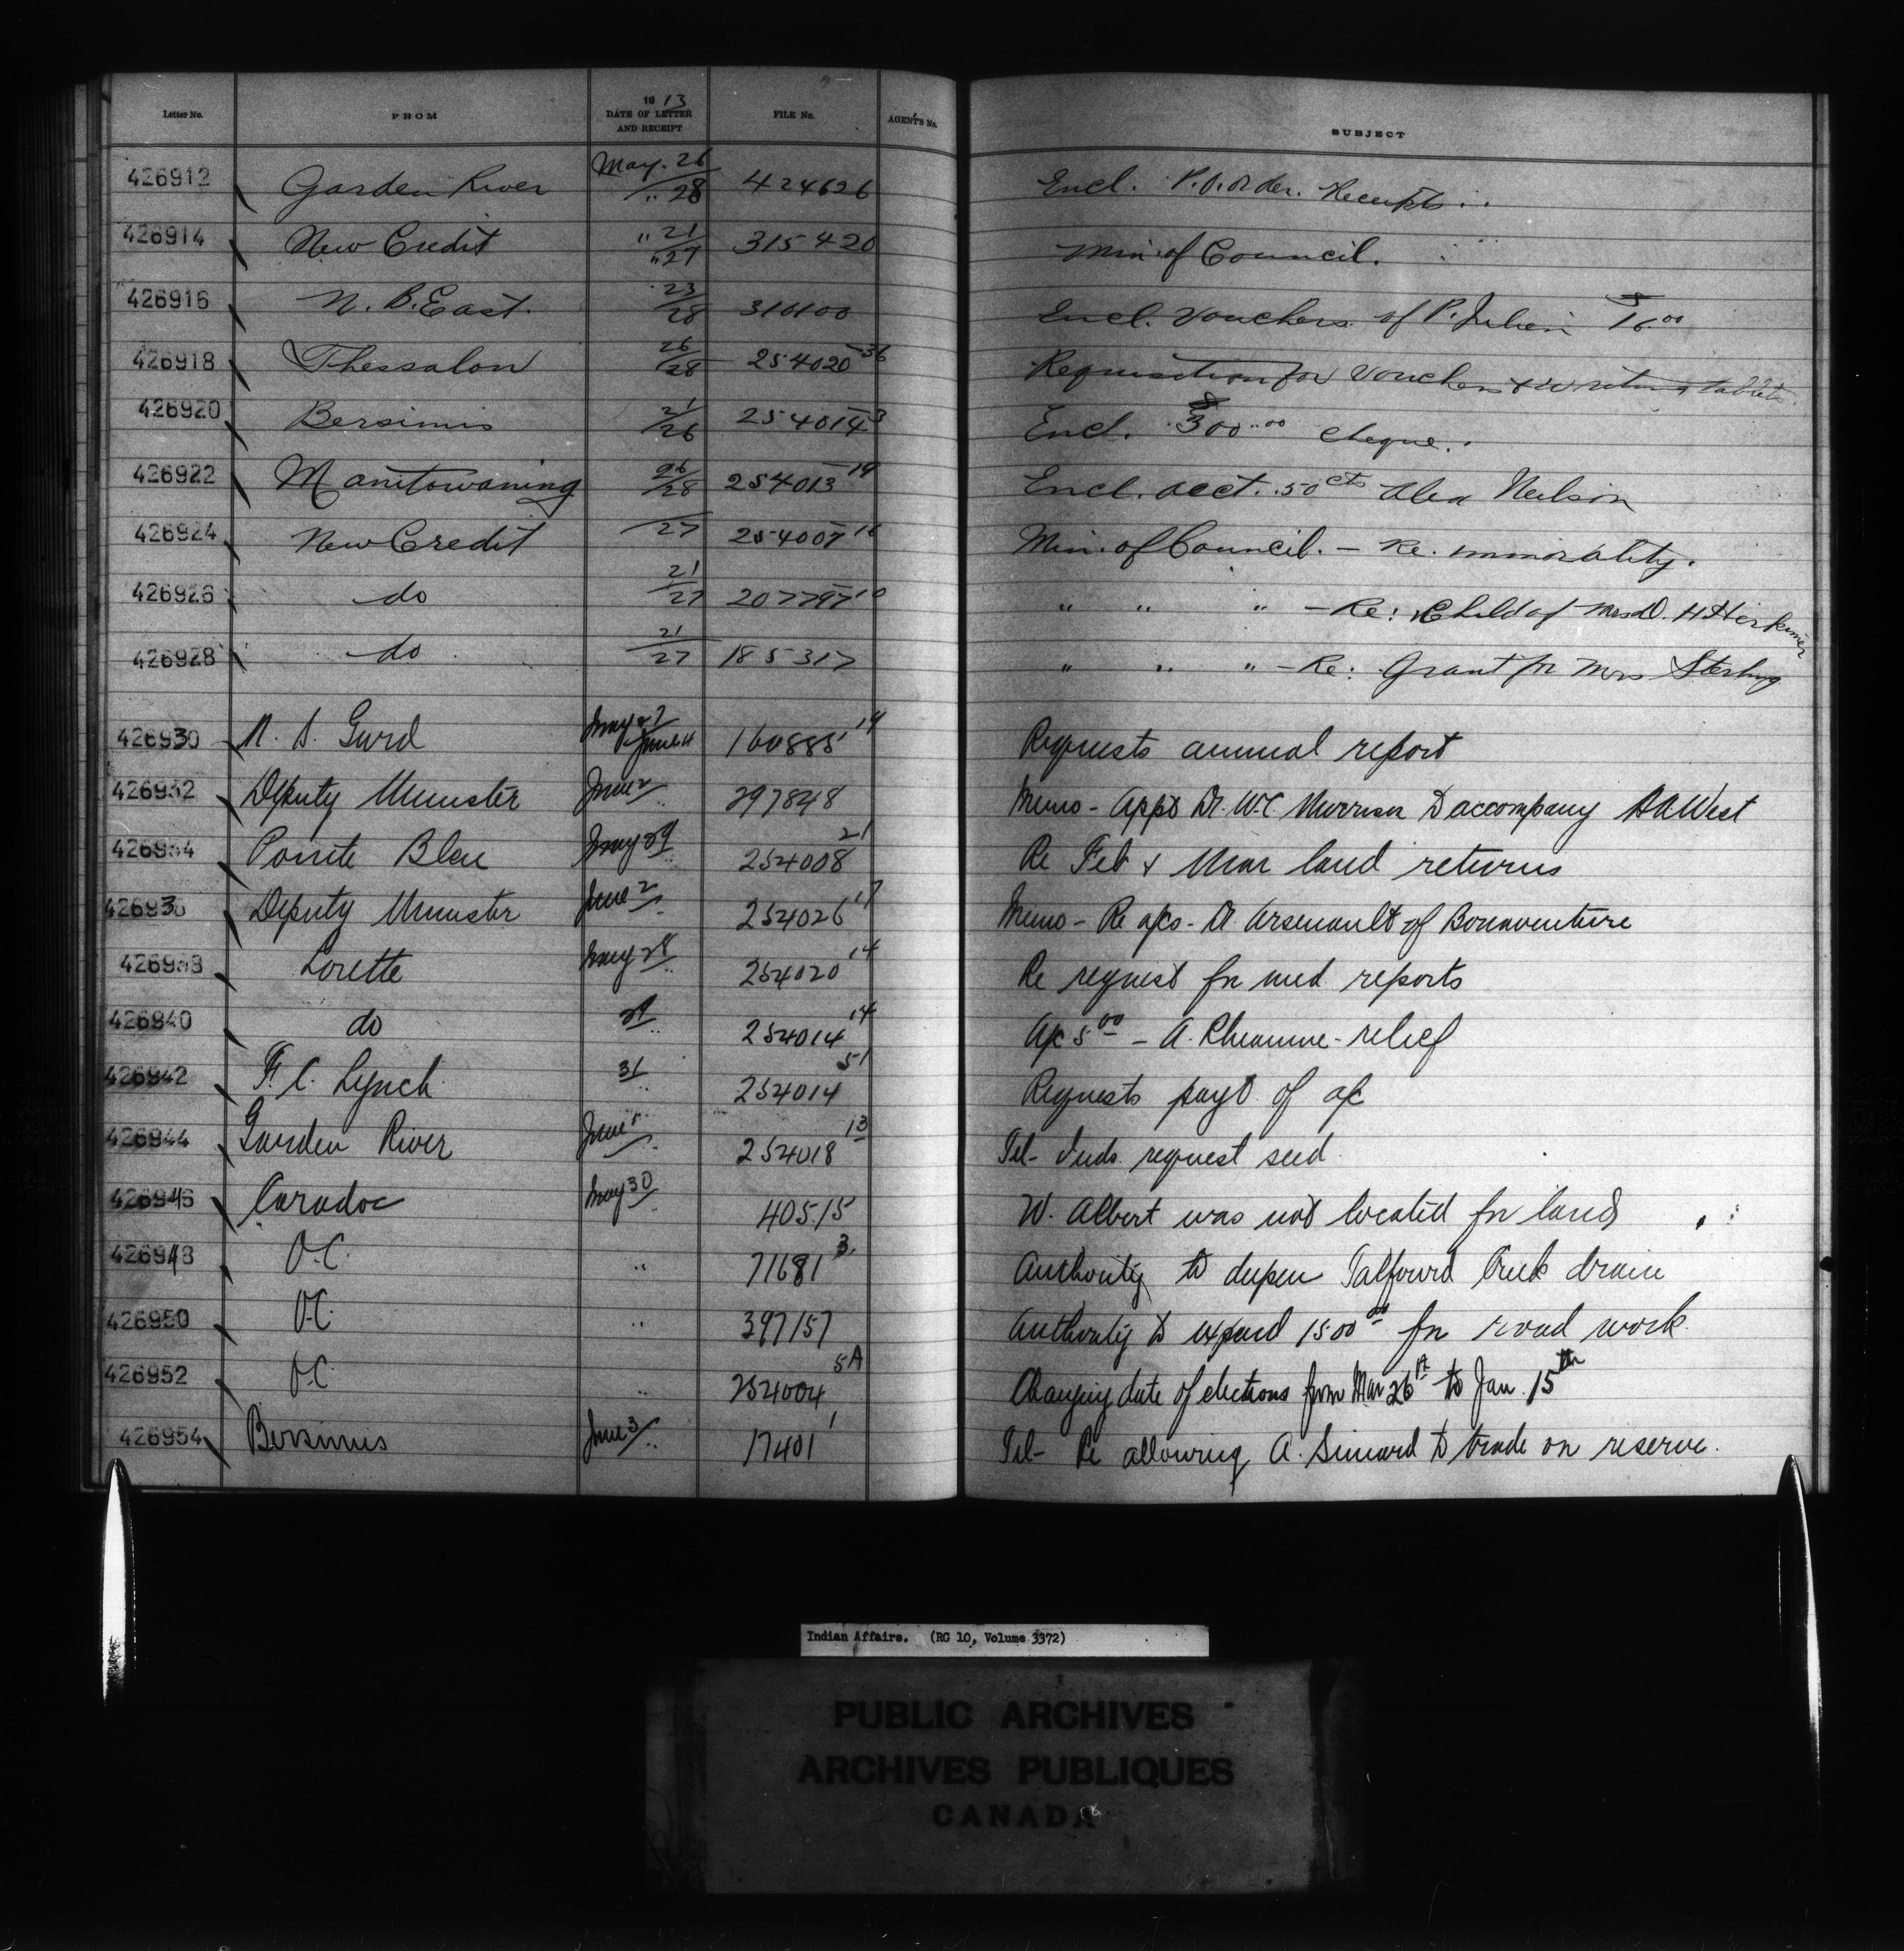 Letter No. FROM 1913 DATE OF LETTER AND RECEIPT FILE No. AGENT'S No. SUBJECT
426912 Garden River May. 26 / " 28 424626 Encl. P.O. order. Receipts
426914 New Credit " 21 / " 27 315420 Min. of Council.
426916 N. B. East. 23 / 28 316100 Encl. Vouchers of P. Julien
426918 Thessalon 26 / 28 254020-36 Requisition for Vouchers & writing tablets
426920 Bersimis 21 / 26 254014-3 Encl. $300.00 cheque.
426922 Manitowaning 26 / 28 254013-19 Encl. acct. .50 cts Alex Neilson
426924 New Credit 27 254007 Min. of Council. - Re. immorality.
426926 do 21 / 27 207797 " " " - Re: Child of Mrs D. H Herkimer
426928 do 21 / 27 185317 " " " - Re: Grant for Mrs Sterling
426930 N. S. Gurd May 27 / June 160885 14 Requests annual report
426932 Deputy Minister June 2 / " 297848 Memo - Appt Dr. W.C. Morrison to accompany West
426934 Pointe Bleu May 29 / " 254008 21 Re Feb & Mar land returns
426936 Deputy Minister June 2 / " 254026 17 Memo - Re a/cs - Dr. Arsenault of Bonaventure
426938 Lorette May 28 / " 254020 14 Re request for med reports
426940 do 29 / " 254014 14 A/c 5 00 - A. Rheaume - relief
426942 F. C. Lynch 31 / " 254014 51 Requests payt. of a/c
426944 Garden River June 254018 13 Tel - Inds. request seed
426946 Caradoc May 30 / " 40515 W. Albert was not located for land
426948 O.C. " 71681 3 Authority to deepen Talfourd Creek drain
426950 O.C. " 397157 Authority to expend 1500 00 for road work.
426952 O.C. " 254004 5A Changing date of elections from Mar 26th to Jan. 15th
426954 Bersimis June 3 / " 17401 1 Tel - Re allowing A. Simard to trade on reserve.
Indian Affairs. (RG 10, Volume 3372)
PUBLIC ARCHIVES
ARCHIVES PUBLIQUES
CANADA